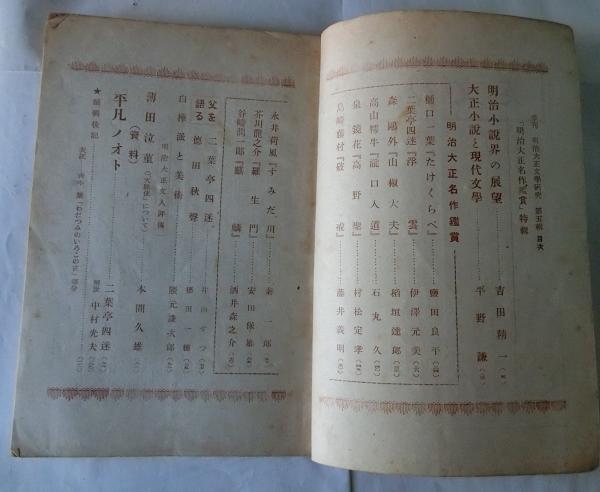 季刊 明治大正文學研究 第五輯 目次
「明治大正名作鑑賞」特輯
明治小說界の展望 吉田精一
大正小說と現代文學 平野謙
明治大正名作鑑賞
樋口一葉『たけくらべ』 鹽田良平
二葉亭四迷『浮雲』 伊澤元美
森鷗外『山椒大夫』 稻垣達郎
高山樗牛『瀧口入道』 石丸久
泉鏡花『高野聖』 村松定孝
島崎藤村『破戒』 藤井義明
永井荷風『すみだ川』 秦一郎
芥川龍之介『羅生門』 安田保雄
谷崎潤一郎『麒麟』 酒井森之介
父を語る
二葉亭四迷 片山せつ
德田秋聲 德田一穗
白樺派と美術 隈元謙次郎
明治大正文人評傳
薄田泣菫 本間久雄
（資料）
平凡ノオト 二葉亭四迷
解說 中村光夫
★編輯後記
表紙 靑木繁「わだつみのいろこの宮」部分